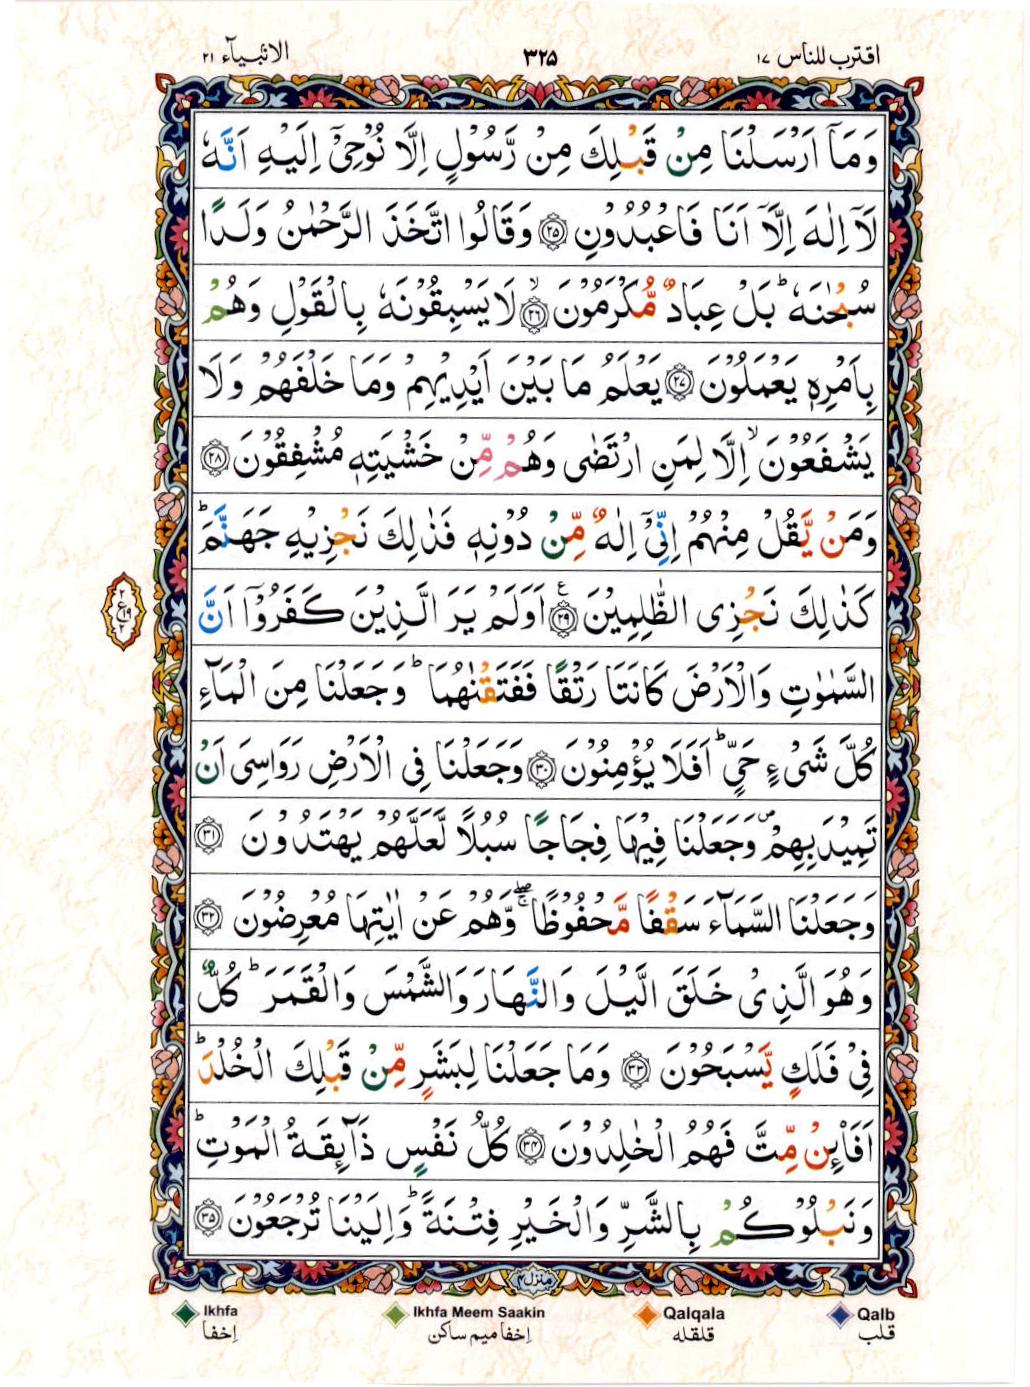 اقترب للناس ١٧
٣٢٥
الانبیآء ٢١
وَمَآ اَرْسَلْنَا مِنْ قَبْلِكَ مِنْ رَّسُوْلٍ اِلَّا نُوْحِیْۤ اِلَیْهِ اَنَّهٗ
لَاۤ اِلٰهَ اِلَّاۤ اَنَا فَاعْبُدُوْنِ ﴿٢٥﴾ وَقَالُوا اتَّخَذَ الرَّحْمٰنُ وَلَدًا
سُبْحٰنَهٗ ؕ بَلْ عِبَادٌ مُّكْرَمُوْنَ ۙ ﴿٢٦﴾ لَا یَسْبِقُوْنَهٗ بِالْقَوْلِ وَهُمْ
بِاَمْرِهٖ یَعْمَلُوْنَ ﴿٢٧﴾ یَعْلَمُ مَا بَیْنَ اَیْدِیْهِمْ وَمَا خَلْفَهُمْ وَلَا
یَشْفَعُوْنَ ۙ اِلَّا لِمَنِ ارْتَضٰی وَهُمْ مِّنْ خَشْیَتِهٖ مُشْفِقُوْنَ ﴿٢٨﴾
وَمَنْ یَّقُلْ مِنْهُمْ اِنِّیْۤ اِلٰهٌ مِّنْ دُوْنِهٖ فَذٰلِكَ نَجْزِیْهِ جَهَنَّمَ ؕ
كَذٰلِكَ نَجْزِی الظّٰلِمِیْنَ ﴿٢٩﴾ ع اَوَلَمْ یَرَ الَّذِیْنَ كَفَرُوْۤا اَنَّ
٢ ع ١٩ ٢
السَّمٰوٰتِ وَالْاَرْضَ كَانَتَا رَتْقًا فَفَتَقْنٰهُمَا ؕ وَجَعَلْنَا مِنَ الْمَآءِ
كُلَّ شَیْءٍ حَیٍّ ؕ اَفَلَا یُؤْمِنُوْنَ ﴿٣٠﴾ وَجَعَلْنَا فِی الْاَرْضِ رَوَاسِیَ اَنْ
تَمِیْدَ بِهِمْ ۪ وَجَعَلْنَا فِیْهَا فِجَاجًا سُبُلًا لَّعَلَّهُمْ یَهْتَدُوْنَ ﴿٣١﴾
وَجَعَلْنَا السَّمَآءَ سَقْفًا مَّحْفُوْظًا ۖۚ وَّهُمْ عَنْ اٰیٰتِهَا مُعْرِضُوْنَ ﴿٣٢﴾
وَهُوَ الَّذِیْ خَلَقَ الَّیْلَ وَالنَّهَارَ وَالشَّمْسَ وَالْقَمَرَ ؕ كُلٌّ
فِیْ فَلَكٍ یَّسْبَحُوْنَ ﴿٣٣﴾ وَمَا جَعَلْنَا لِبَشَرٍ مِّنْ قَبْلِكَ الْخُلْدَ ؕ
اَفَا۟ىِٕنْ مِّتَّ فَهُمُ الْخٰلِدُوْنَ ﴿٣٤﴾ كُلُّ نَفْسٍ ذَآىِٕقَةُ الْمَوْتِ ؕ
وَنَبْلُوْكُمْ بِالشَّرِّ وَالْخَیْرِ فِتْنَةً ؕ وَاِلَیْنَا تُرْجَعُوْنَ ﴿٣٥﴾
منزل ٤
Ikhfa Ikhfa Meem Saakin Qalqala Qalb
اِخفا اِخفا میم ساکن قلقله قلب